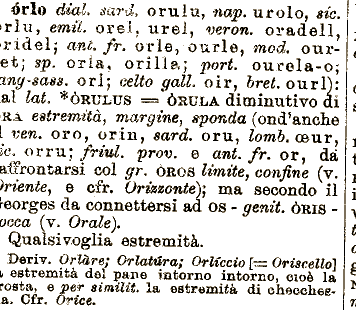 órlo dial. sard. orulu, nap. urolo, sic.
orlu, emil. orel, urel, veron. oradell,
oridel; ant. fr. orle, ourle, mod. our-
et; sp. oria, orilla; port. ourela-o;
ang-sass. orl; celto gall. oir, bret. ourl):
dal lat. *ÒRULUS = ÒRULA diminutivo di
ORA estremità, margine, sponda (ond'anche
il ven. oro, orin, sard. oru, lomb. œur,
sic. orru; friul. prov. e ant. fr. or, da
raffrontarsi col gr. ÒROS limite, confine (v.
Oriente, e cfr. Orizzonte); ma secondo il
Georges da connettersi ad OS - genit. ÒRIS -
bocca (v. Orale).
Qualsivoglia estremità.
Deriv. Orlàre; Orlatúra; Orlíccio [= Oriscello]
la estremità del pane intorno intorno, cioè la
crosta, e per similit. la estremità di checches-
sia. Cfr. Òrice.